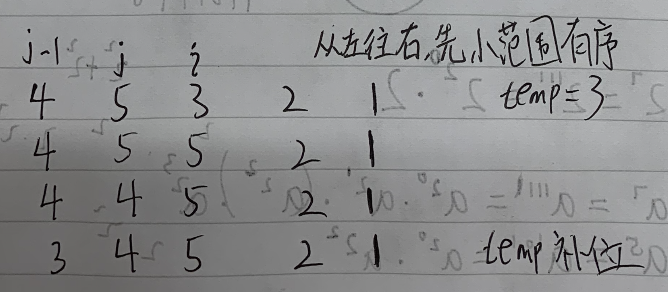 j-1 j i 从左往右,先小范围有序
4 5 3 2 1 temp=3
4 5 5 2 1
4 4 5 2 1
3 4 5 2 1 temp补位